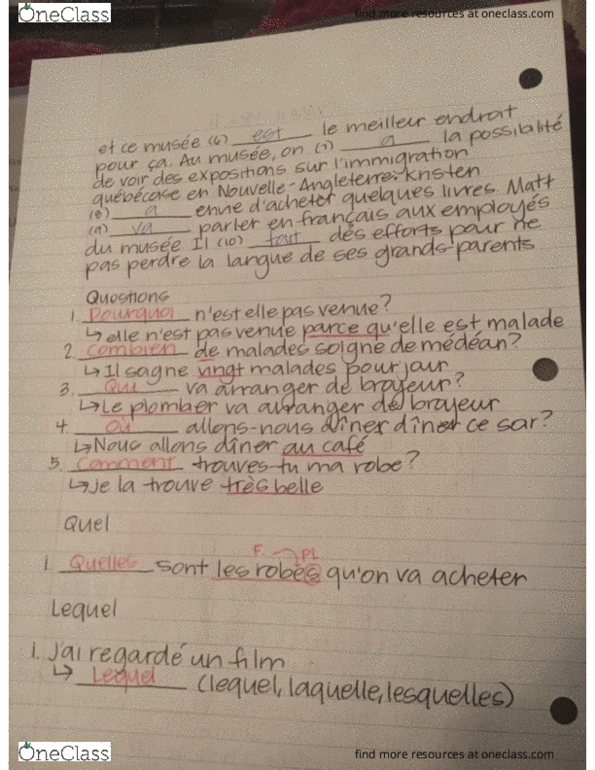 OneClass
find more resources at oneclass.com
et ce musée (6) est le meilleur endroit
pour ça. Au musée, on (7) a la possibilité
de voir des expositions sur l'immigration
québécase en Nouvelle-Angleterre. Kristen
(8) a envie d'acheter quelques livres. Matt
(9) va parler en français aux employés
du musée Il (10) fait des efforts pour ne
pas perdre la langue de ses grands-parents
Questions
1. Pourquoi n'est elle pas venue?
↳ elle n'est pas venue parce qu'elle est malade
2. Combien de malades soigne de médéan?
↳ Il sagne vingt malades pour jour
3. Qui va arranger de broyeur?
↳ Le plomber va arranger de broyeur
4. où allons-nous dîner dîner ce sar?
↳ Nous allons dîner au café
5. Comment trouves-tu ma robe?
↳ je la trouve très belle
Quel
F. PL
1. Quelles sont les robes qu'on va acheter
Lequel
1. J'ai regardé un film
↳ Lequel (lequel, laquelle, lesquelles)
OneClass
find more resources at oneclass.com